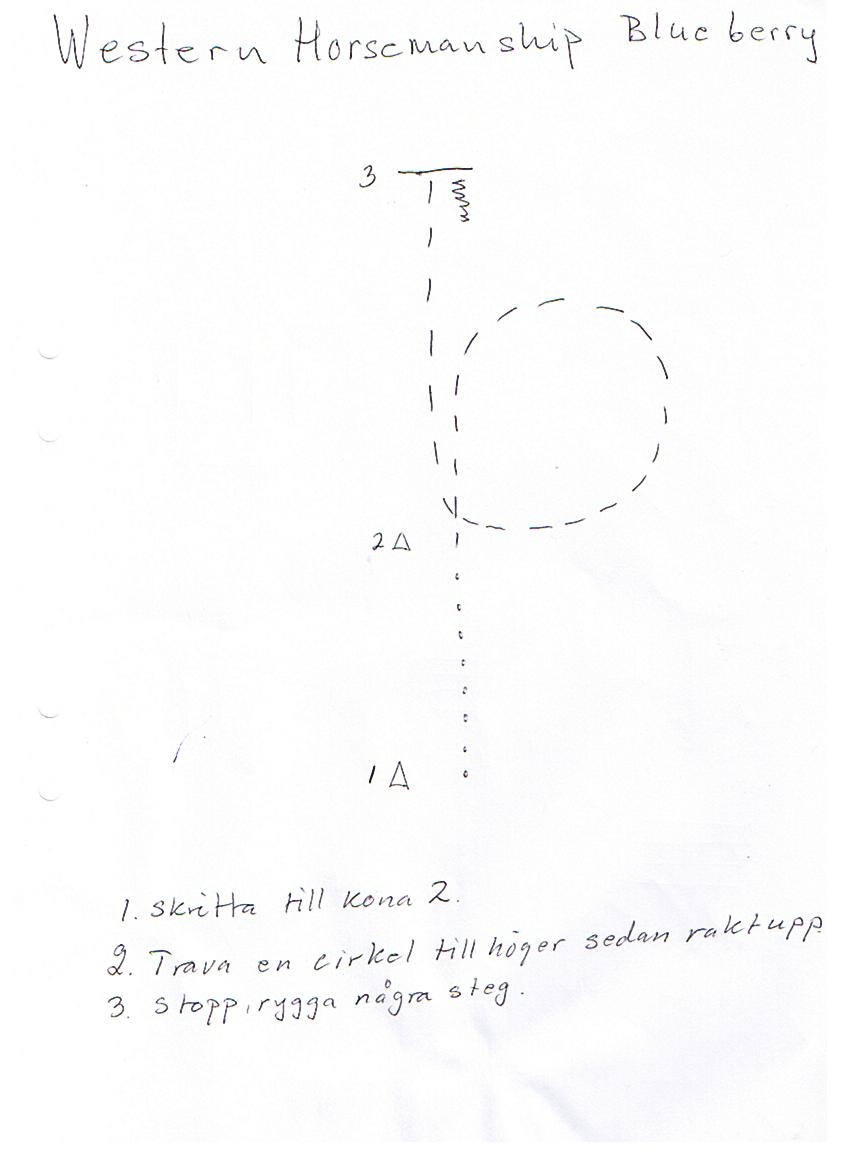 Western Horsemanship Blueberry
3
2
1
1. skritta till kona 2.
2. Trava en cirkel till höger sedan rakt upp.
3. stopp, rygga några steg.